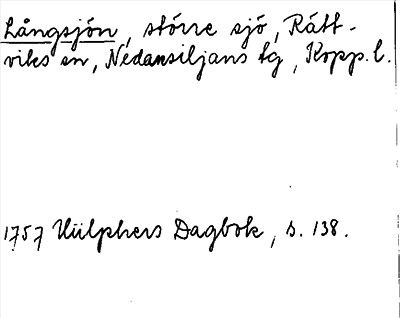 Långsjön, större sjö, Rätt-
viks sn, Nedansiljans tg, Kopp. l.
1757 Hülphers Dagbok, s. 138.